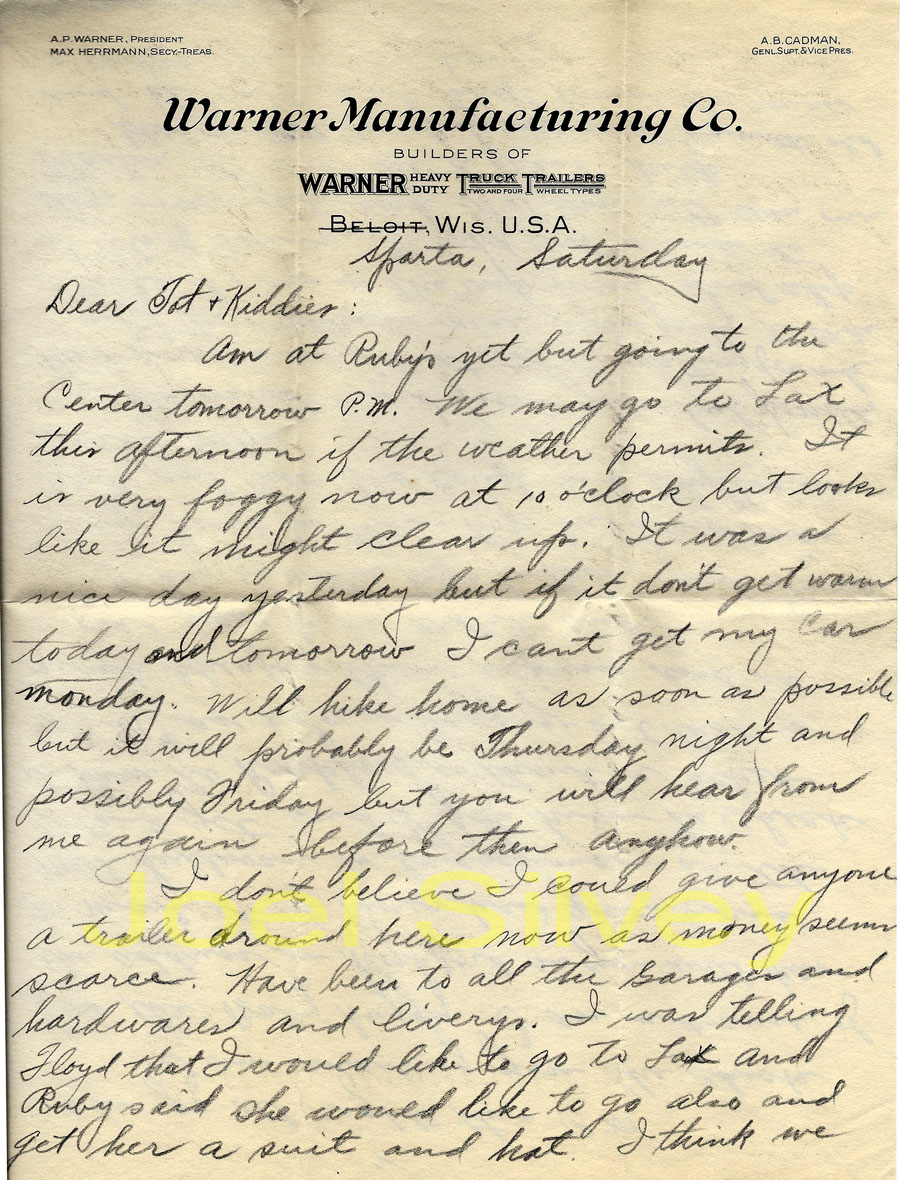 A.P. WARNER, PRESIDENT
MAX HERRMANN, SECY.-TREAS.
A.B. CADMAN,
GENL. SUPT. & VICE PRES.
Warner Manufacturing Co.
BUILDERS OF
WARNER HEAVY DUTY TRUCK TRAILERS
TWO AND FOUR WHEEL TYPES
BELOIT, WIS. U.S.A.
Sparta, Saturday
Dear Tot & Kiddies:
Am at Ruby's yet but going to the
Center tomorrow P.M. We may go to LaX
this afternoon if the weather permits. It
is very foggy now at 10 o'clock but looks
like it might clear up. It was a
nice day yesterday but if it don't get warm
today and tomorrow I cant get my car
monday. Will hike home as soon as possible
but it will probably be Thursday night and
possibly Friday but you will hear from
me again before then anyhow.
I don't believe I could give anyone
a trailer around here now as money seems
scarce. Have been to all the garages and
hardwares and liverys. I was telling
Floyd that I would like to go to LaX and
Ruby said she would like to go also and
get her a suit and hat. I think we
Joel Silvey